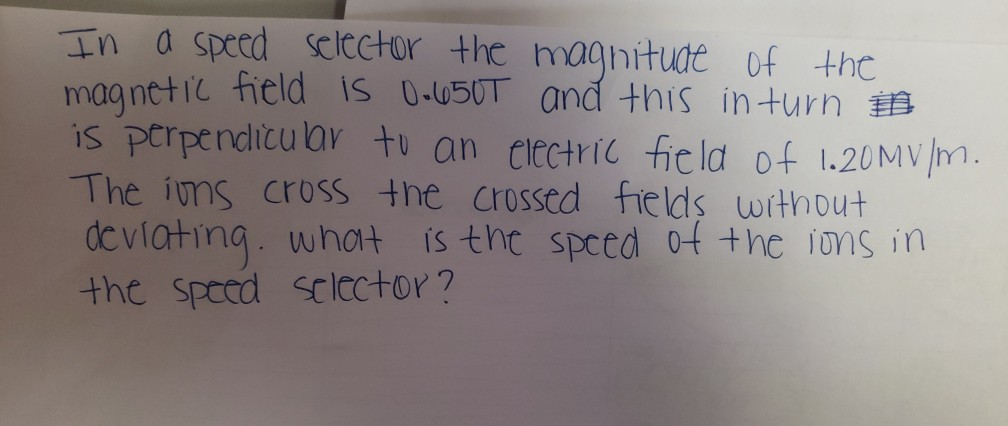 In a speed selector the magnitude of the
magnetic field is 0.650T and this in turn
is perpendicular to an electric field of 1.20MV/m.
The ions cross the crossed fields without
deviating. what is the speed of the ions in
the speed selector?